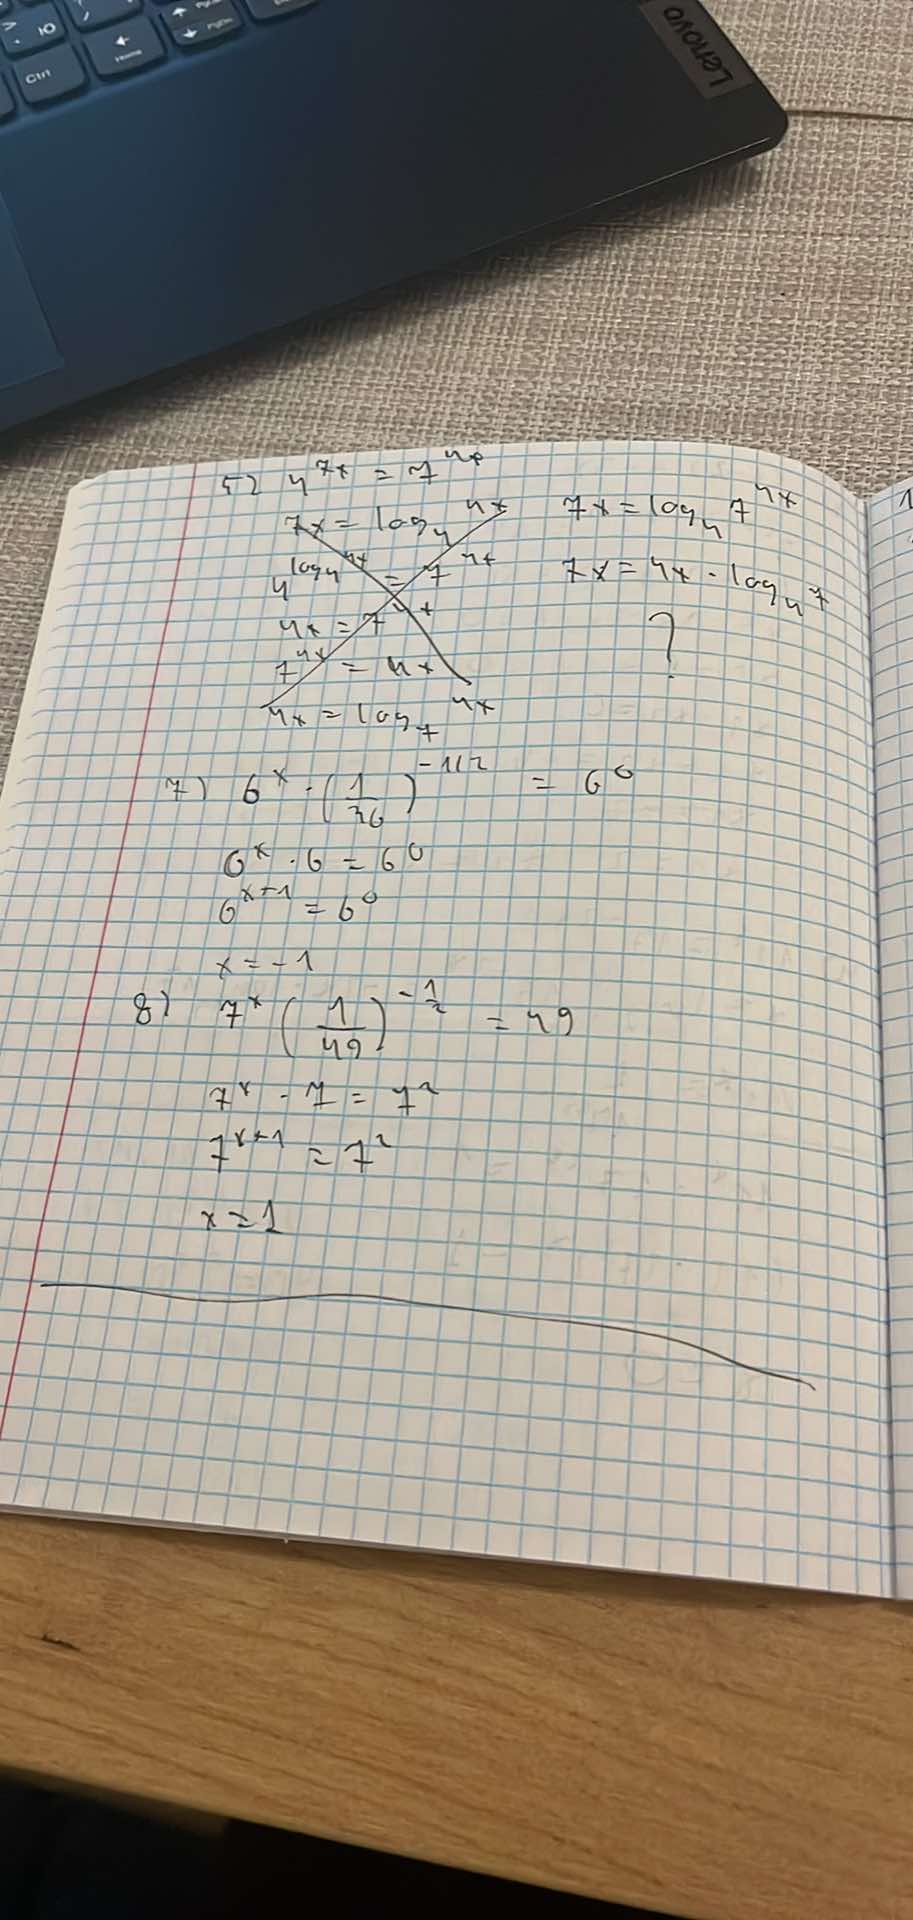 Ю
Ctrl
Home
PgUp
PgDn
Lenovo
5) 4^7x = 7^4x
7x = log₄ 4x
4^log₄ 4x = 7^4x
4x = 7^4x
7^4x = 4x
4x = log₇ 4x
7x = log₄ 7^4x
7x = 4x · log₄ 7
?
7) 6^x · (1/36)^-1/2 = 6^0
6^x · 6 = 6^0
6^x+1 = 6^0
x = -1
8) 7^x (1/49)^-1/2 = 49
7^x · 7 = 7^2
7^x+1 = 7^2
x = 1
1